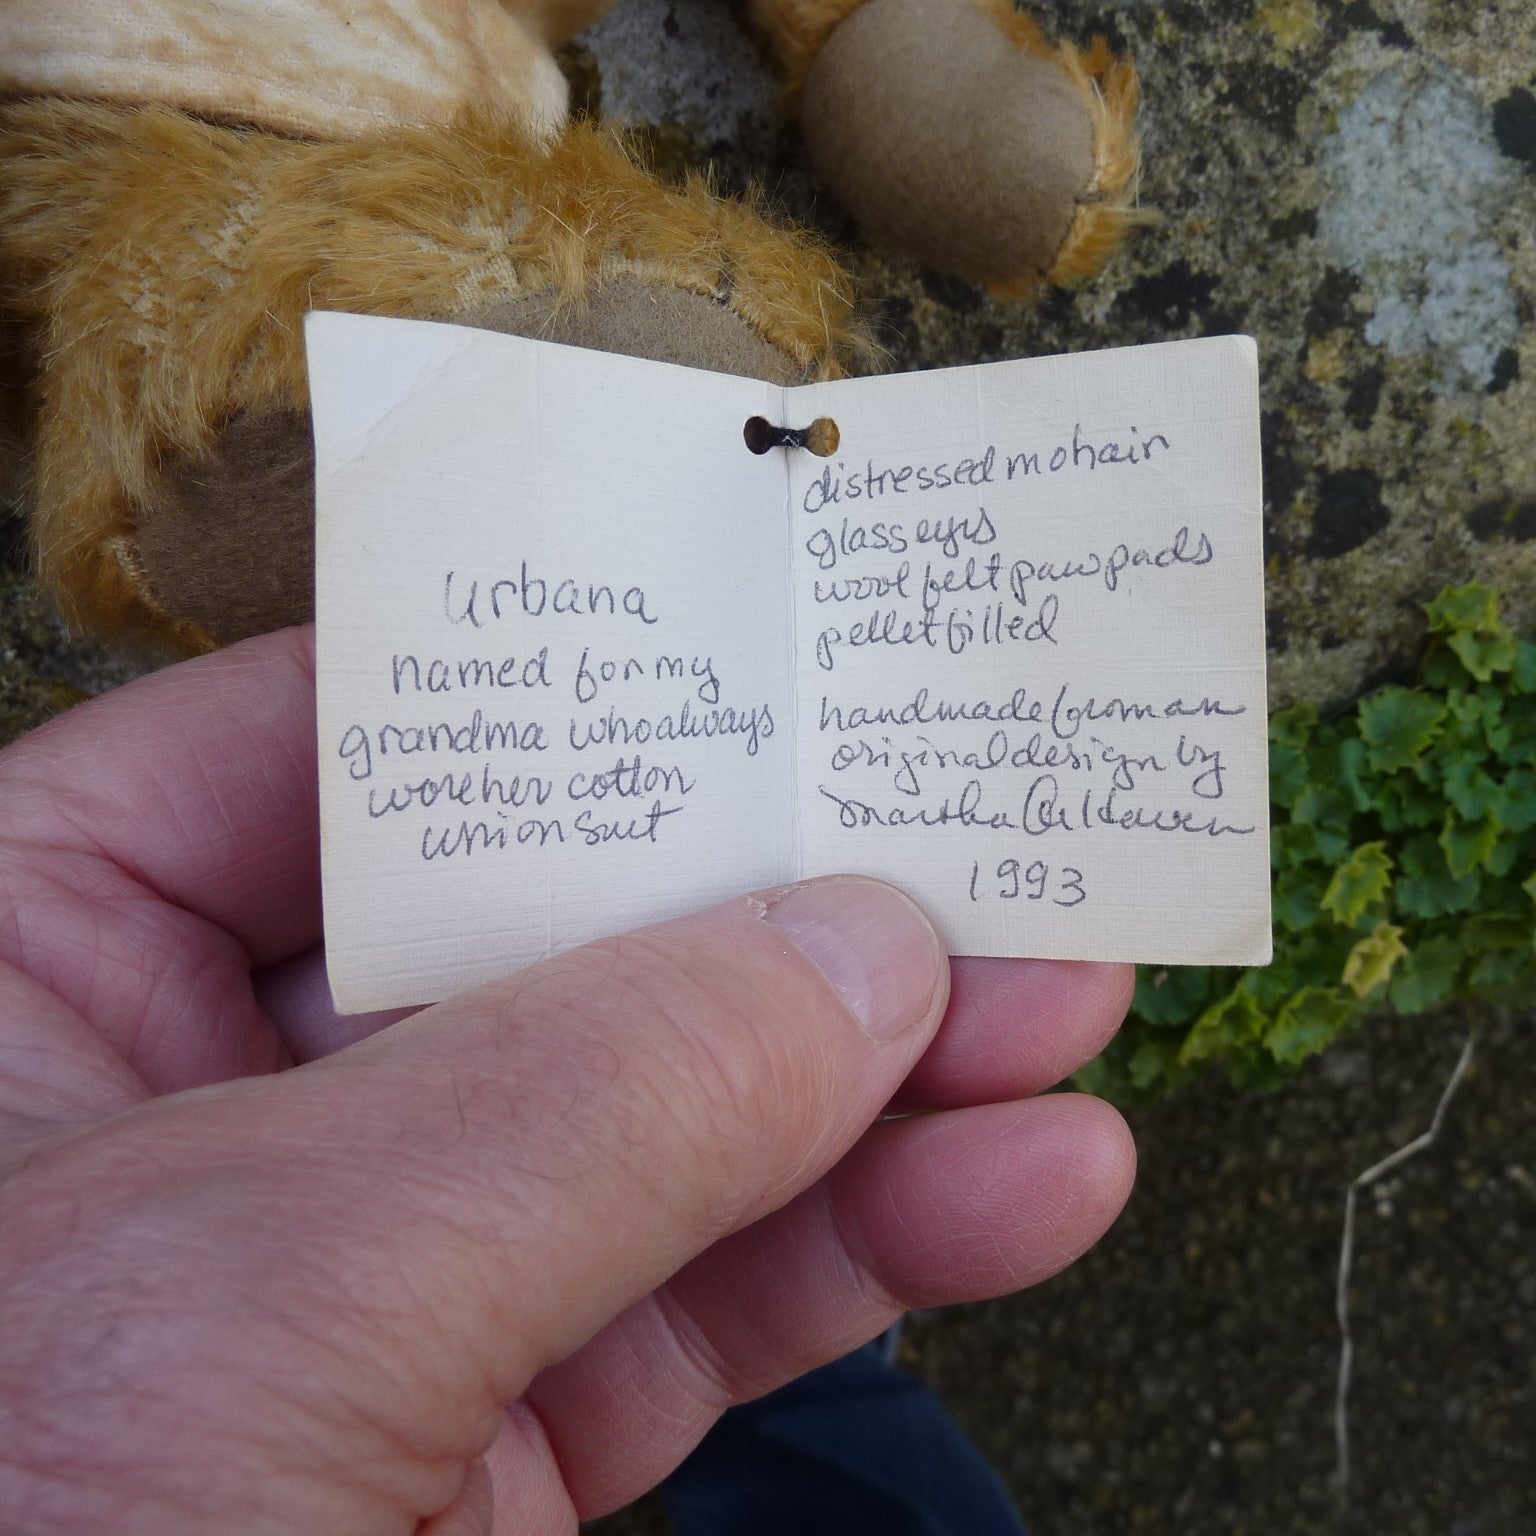 urbana
named for my
grandma who always
wore her cotton
union suit
distressed mohair
glass eyes
wool felt paw pads
pellet filled
handmade from an
original design by
Martha
1993